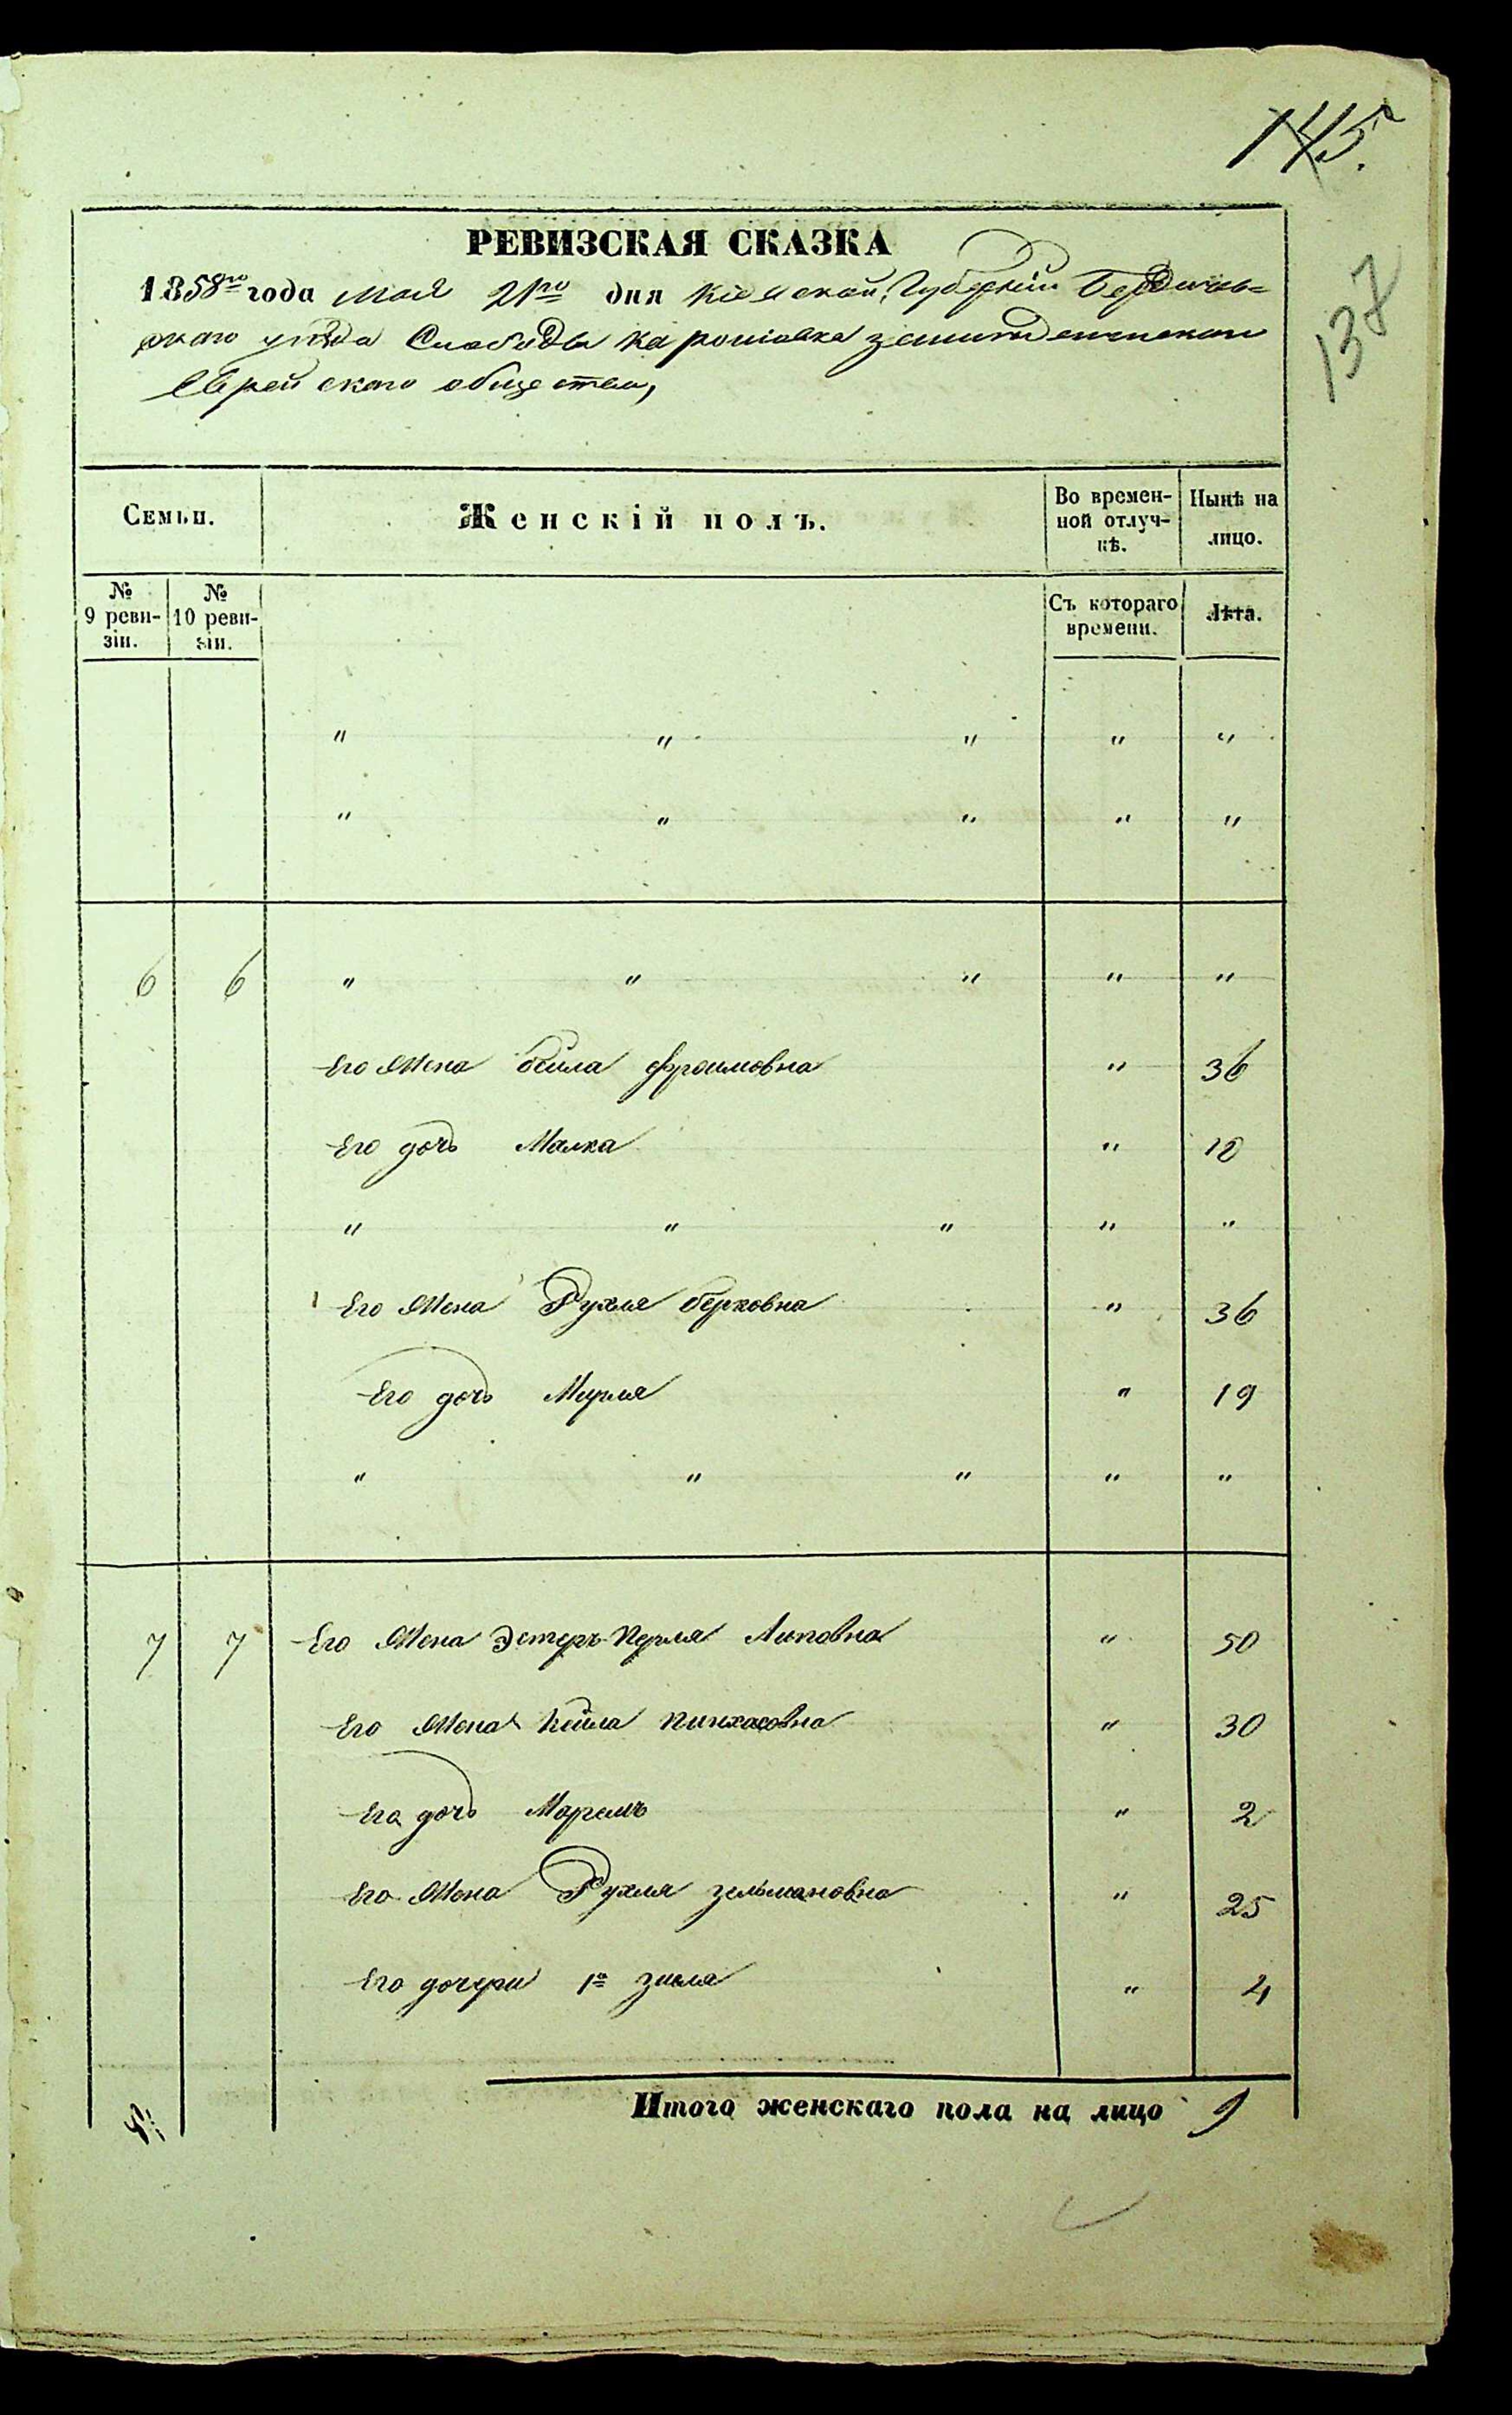 145.
137
РЕВИЗСКАЯ СКАЗКА
1858го года мая 21го дня Кіевской Губерніи Бердичев=
скаго уѣзда Слободы
Еврейскаго общества,
Семьи.
Женскій полъ.
Во времен-
ной отлуч-
кѣ.
Нынѣ на
лицо.
№
9 реви-
зіи.
№
10 реви-
зіи.
Съ котораго
времени.
Лѣта.
" " " " "
" " " " "
6 6 " " " " "
Его Жена бейла фроимовна " 36
Его дочь Малка " 18
" " " " "
Его Жена Рухля берковна " 36
Его дочь Мирля " 19
" " " " "
7 7 Его Жена Эстеръ Перля Липовна " 50
Его Жена Кейла пинхасовна " 30
Его дочь Маремъ " 2
Его Жена Рухля зельмановна " 25
Его дочери 1я зисля " 4
Итого женскаго пола на лицо 9